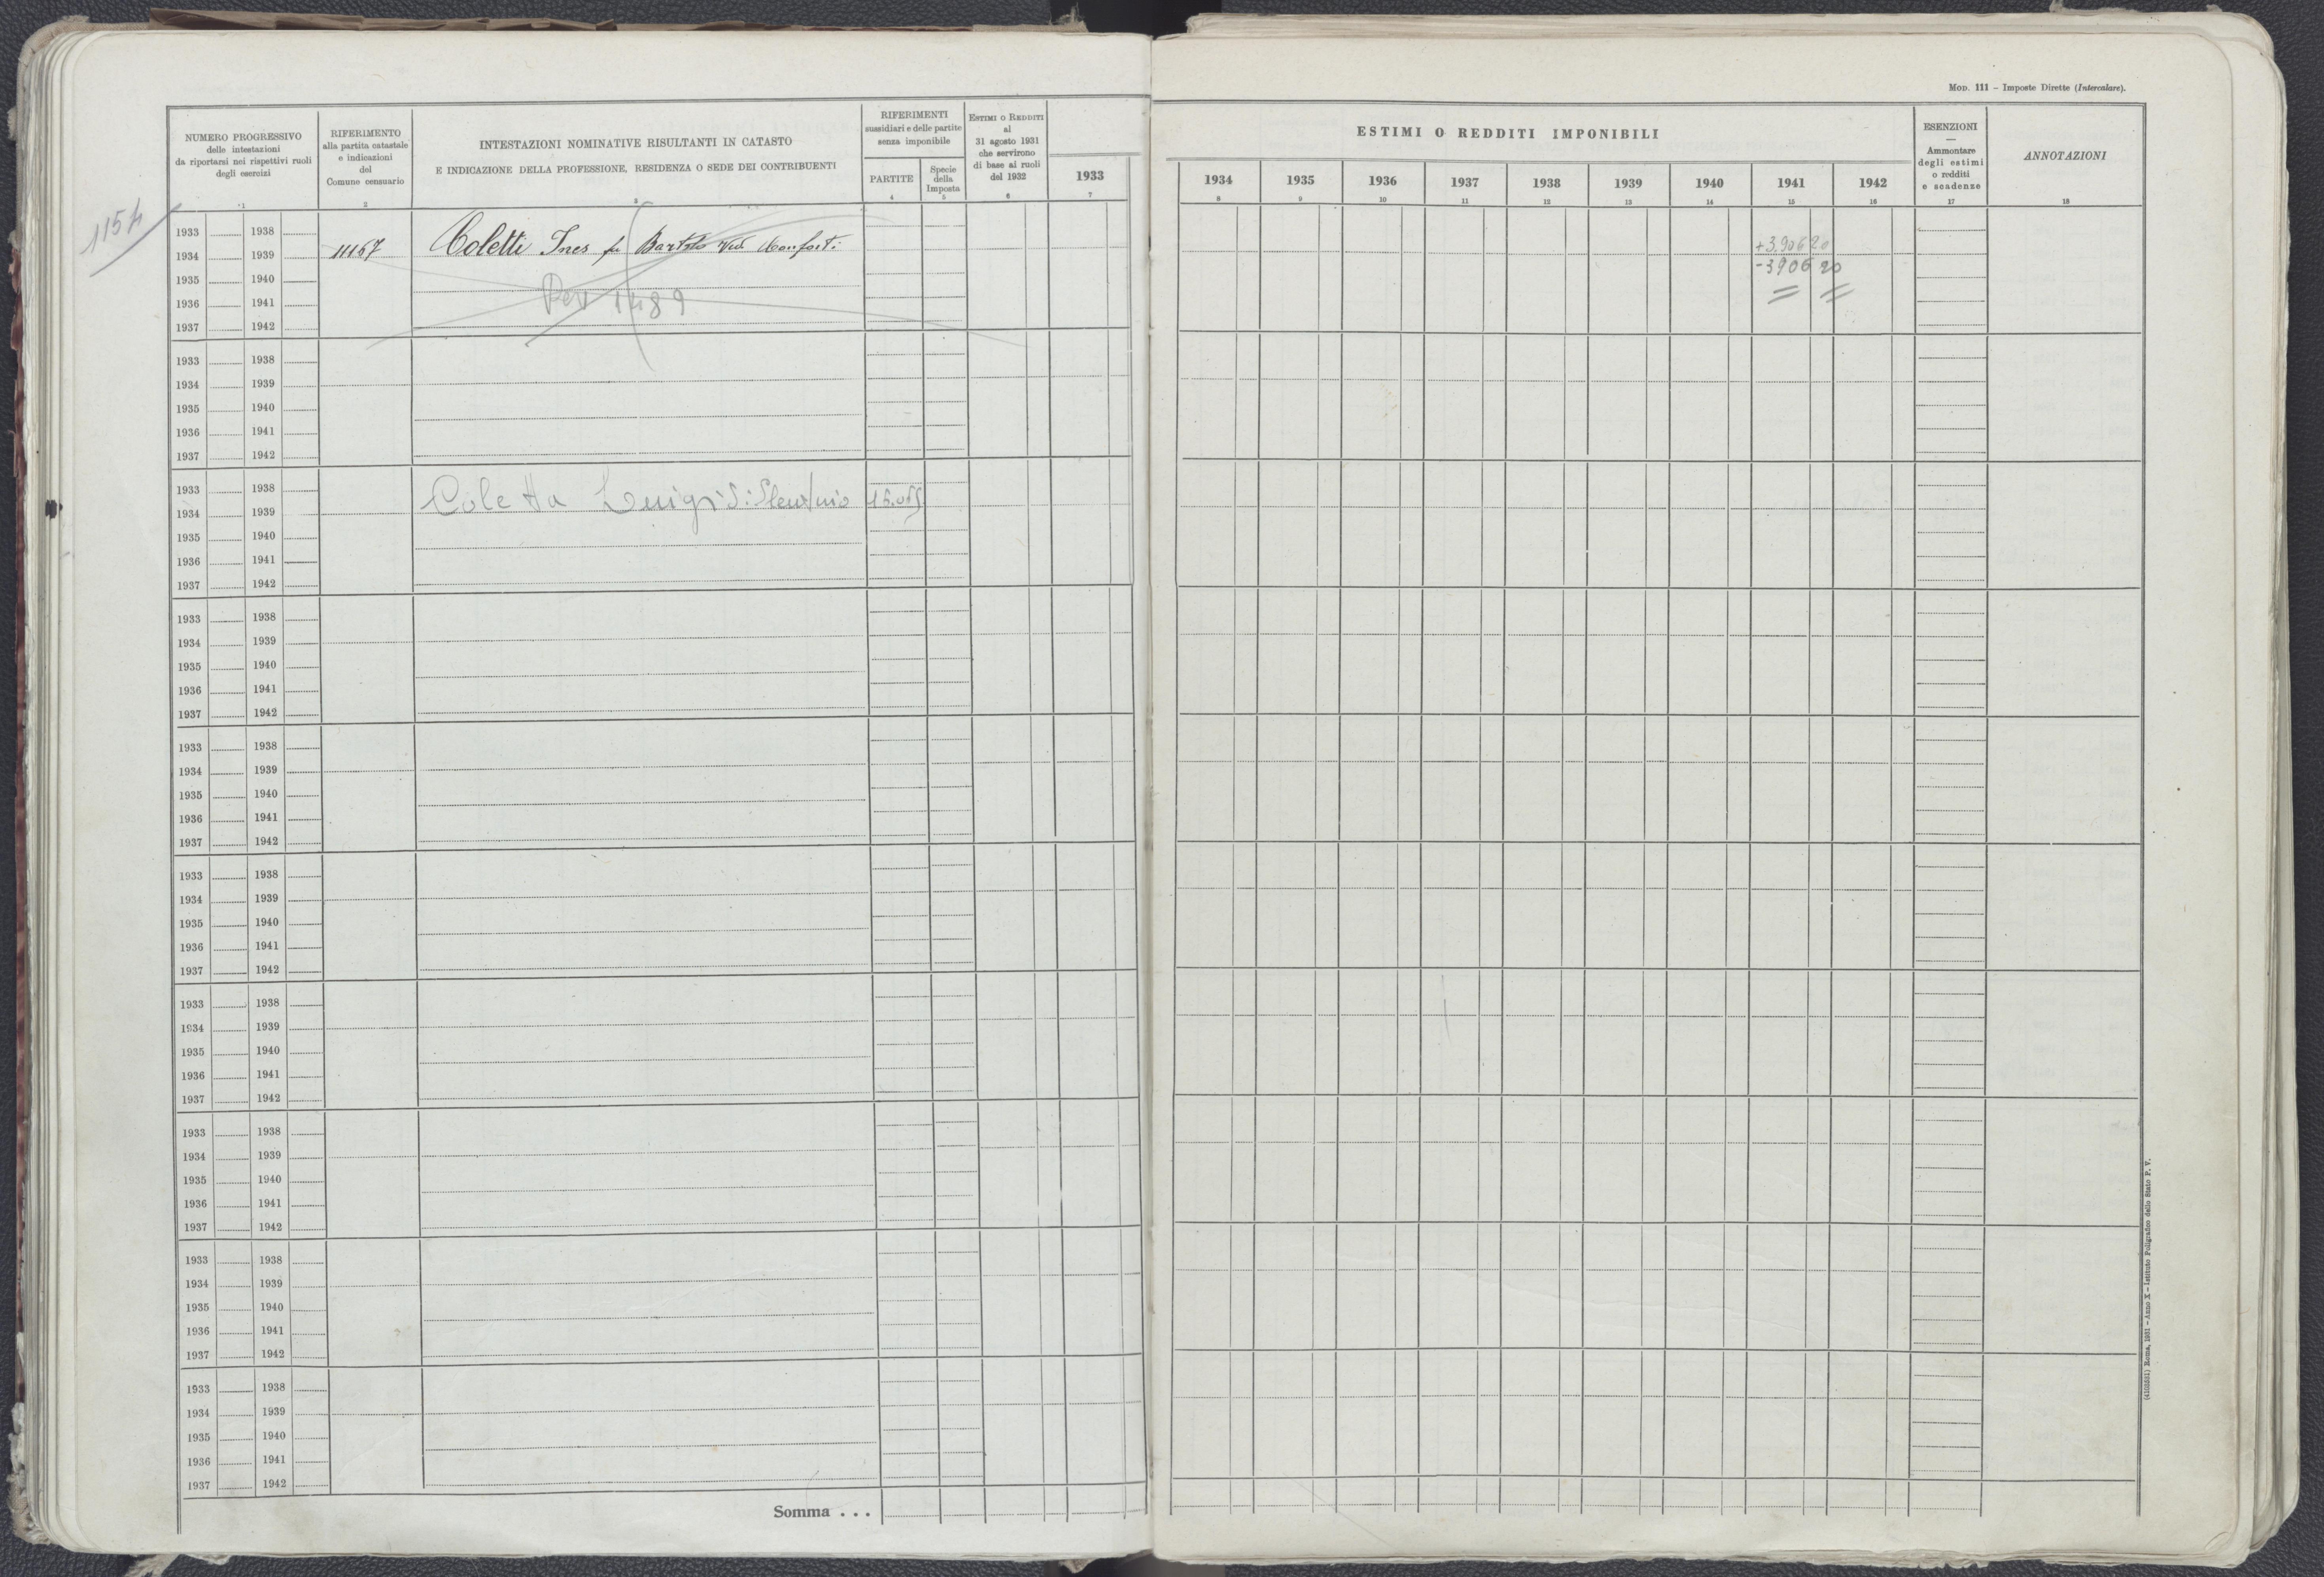 Mod. 111 – Imposte Dirette (Intercalare).
NUMERO PROGRESSIVO
delle intestazioni
da riportarsi nei rispettivi ruoli
degli esercizi
1
RIFERIMENTO
alla partita catastale
e indicazioni
del
Comune censuario
2
INTESTAZIONI NOMINATIVE RISULTANTI IN CATASTO
E INDICAZIONE DELLA PROFESSIONE, RESIDENZA O SEDE DEI CONTRIBUENTI
3
RIFERIMENTI
sussidiari e delle partite
senza imponibile
PARTITE
4
Specie
della
Imposta
5
Estimi o Redditi
al
31 agosto 1931
che servirono
di base ai ruoli
del 1932
6
ESTIMI O REDDITI IMPONIBILI
1933
7
1934
8
1935
9
1936
10
1937
11
1938
12
1939
13
1940
14
1941
15
1942
16
ESENZIONI
—
Ammontare
degli estimi
o redditi
e scadenze
17
ANNOTAZIONI
18
1154
1933 1938
1934 1939 11167 Coletti Ines fu Bartolo ved. Monforti
1935 1940
1936 1941 1489
1937 1942
+3.906 20
-3906 20
1933 1938
1934 1939
1935 1940
1936 1941
1937 1942
1933 1938
1934 1939 Coletta Luigi di
1935 1940
1936 1941
1937 1942
1933 1938
1934 1939
1935 1940
1936 1941
1937 1942
1933 1938
1934 1939
1935 1940
1936 1941
1937 1942
1933 1938
1934 1939
1935 1940
1936 1941
1937 1942
1933 1938
1934 1939
1935 1940
1936 1941
1937 1942
1933 1938
1934 1939
1935 1940
1936 1941
1937 1942
1933 1938
1934 1939
1935 1940
1936 1941
1937 1942
1933 1938
1934 1939
1935 1940
1936 1941
1937 1942
Somma . . .
Roma, 1931 – Anno X – Istituto Poligrafico dello Stato P. V.